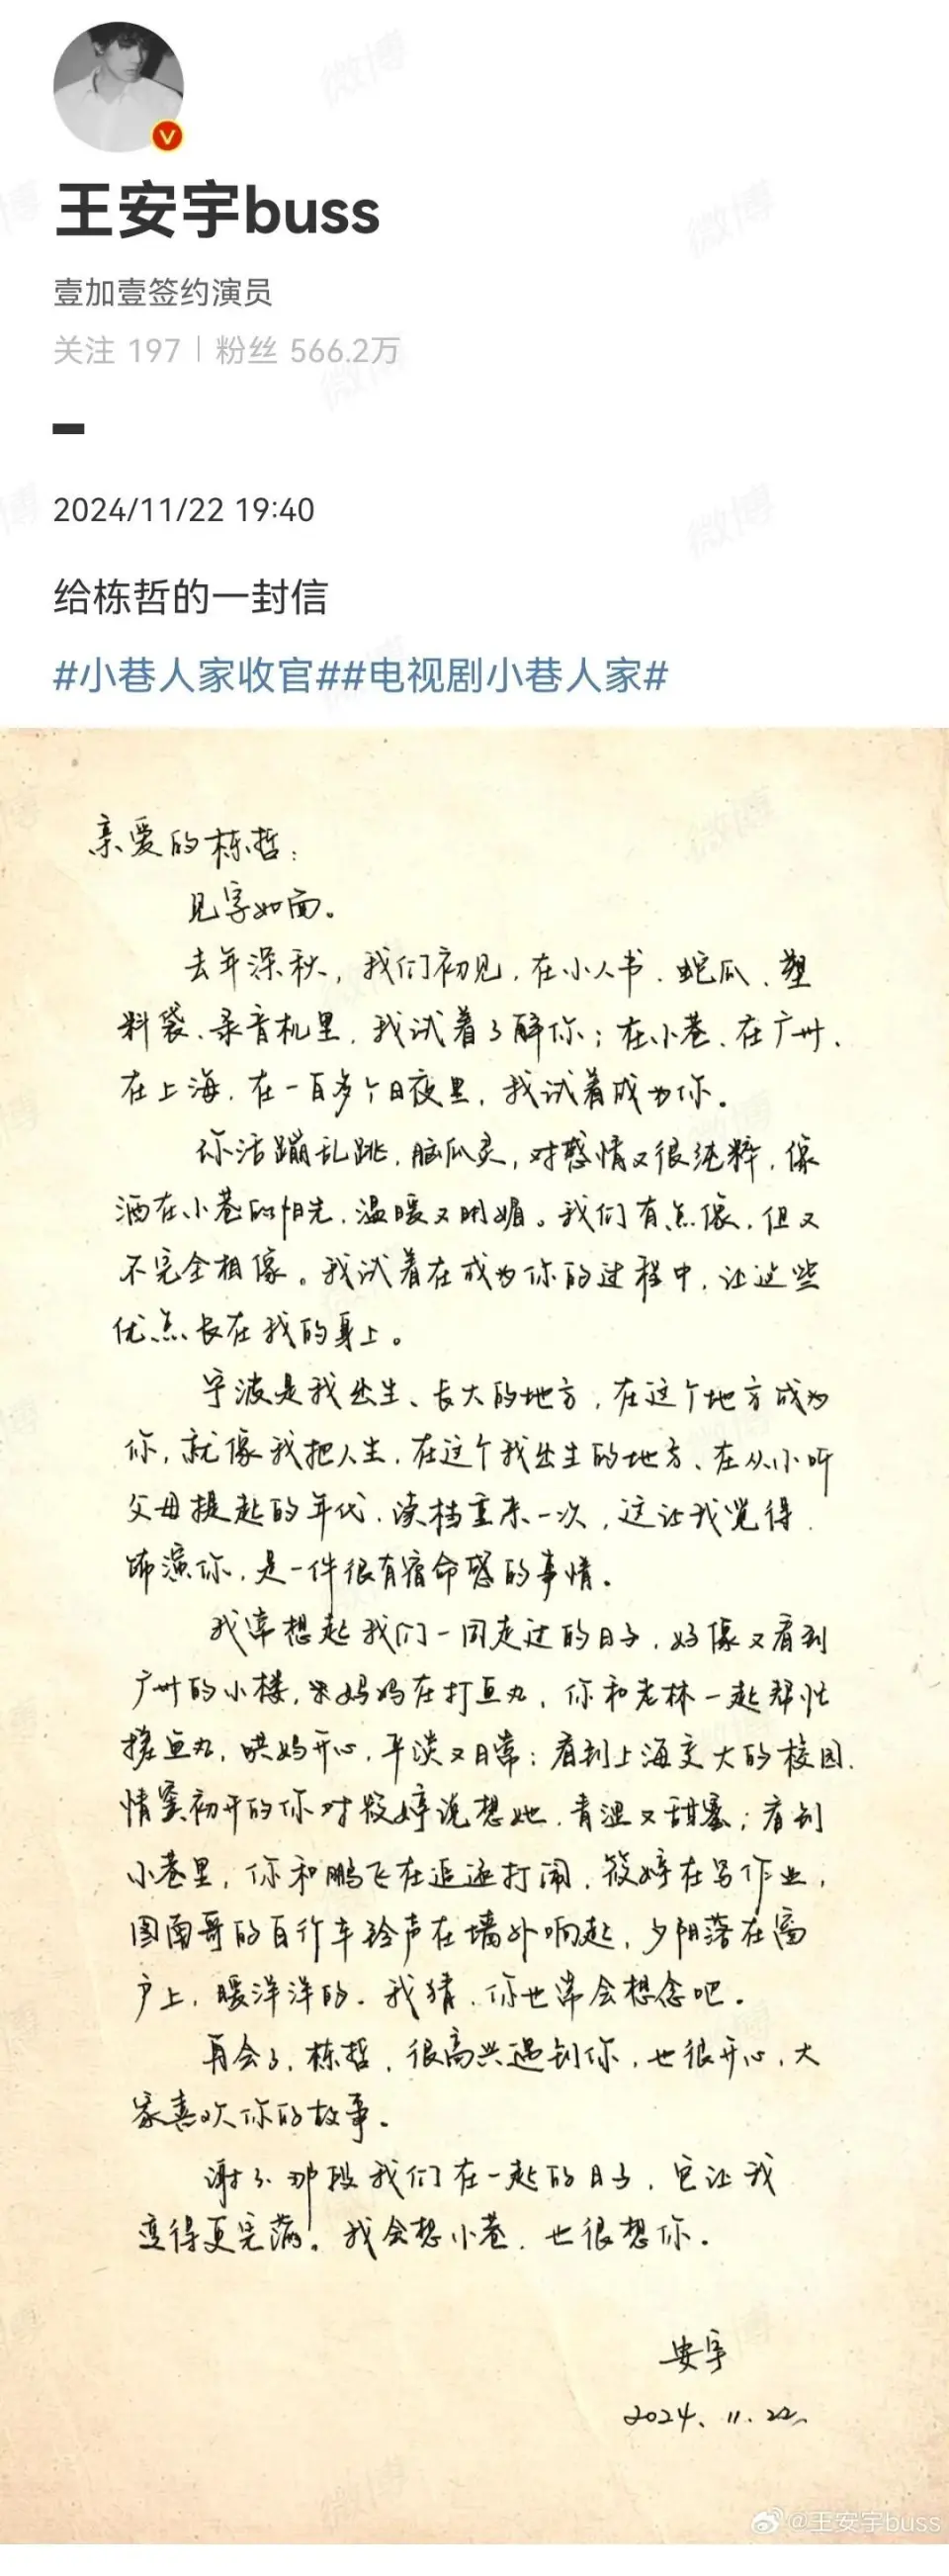 王安宇buss
壹加壹签约演员
关注 197 | 粉丝 566.2万
2024/11/22 19:40
给栋哲的一封信
#小巷人家收官##电视剧小巷人家#
亲爱的栋哲：
见字如面。
去年深秋，我们初见，在小人书、蛇瓜、塑
料袋、录音机里，我试着了解你；在小巷、在广州、
在上海，在一百多个日夜里，我试着成为你。
你活蹦乱跳，脑瓜灵，对感情又很纯粹，像
洒在小巷的阳光，温暖又明媚。我们有点像，但又
不完全相像。我试着在成为你的过程中，让这些
优点长在我的身上。
宁波是我出生、长大的地方，在这个地方成为
你，就像我把人生，在这个我出生的地方、在从小听
父母提起的年代，读档重来一次，这让我觉得，
饰演你，是一件很有宿命感的事情。
我常想起我们一同走过的日子，好像又看到
广州的小楼，宋妈妈在打鱼丸，你和老林一起帮忙
搓鱼丸，哄妈开心，平淡又日常；看到上海交大的校园，
情窦初开的你对筱婷说想她，青涩又甜蜜；看到
小巷里，你和鹏飞在追逐打闹，筱婷在写作业，
图南哥的自行车铃声在墙外响起，夕阳落在窗
户上，暖洋洋的。我猜，你也常会想念吧。
再会了，栋哲，很高兴遇到你，也很开心，大
家喜欢你的故事。
谢了那段我们在一起的日子，它让我
变得更完满。我会想小巷，也很想你。
安宇
2024.11.22
@王安宇buss
微博